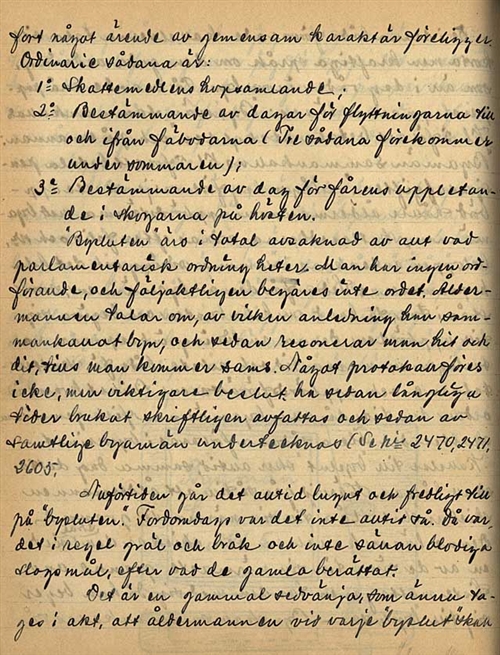 fort något ärende av gemensam karaktär föreligger.
Ordinarie sådana är:
1º Skattemedlens hopsamlande;
2º Bestämmande av dagar för flyttningarna till
och ifrån fäbodarna (Tre sådana förekommer
under sommaren);
3º Bestämmande av dag för fårens uppletan-
de i skogarna på hösten.
"Bysluten" äro i total avsaknad av allt vad
parlamentarisk ordning heter. Man har ingen ord-
förande, och följaktligen begäres inte ordet. Ålder-
mannen talar om, av vilken anledning han sam-
mankallat byn, och sedan resonerar man hit och
dit, tills man kommer sams. Något protokoll föres
icke, men viktigare beslut ha sedan långliga
tider brukat skriftligen avfattas och sedan av
samtlige byamän undertecknas (Se nº 2470, 2471,
2605.
Nuförtiden går det alltid lugnt och fredligt till
på "bysluten." Fordomdags var det inte alltid så. Då var
det i regel gräl och bråk och inte sällan blodiga
slagsmål, efter vad de gamla berättat.
Det är en gammal sedvänja, som ännu ta-
ges i akt, att åldermannen vid varje "byslut" skall